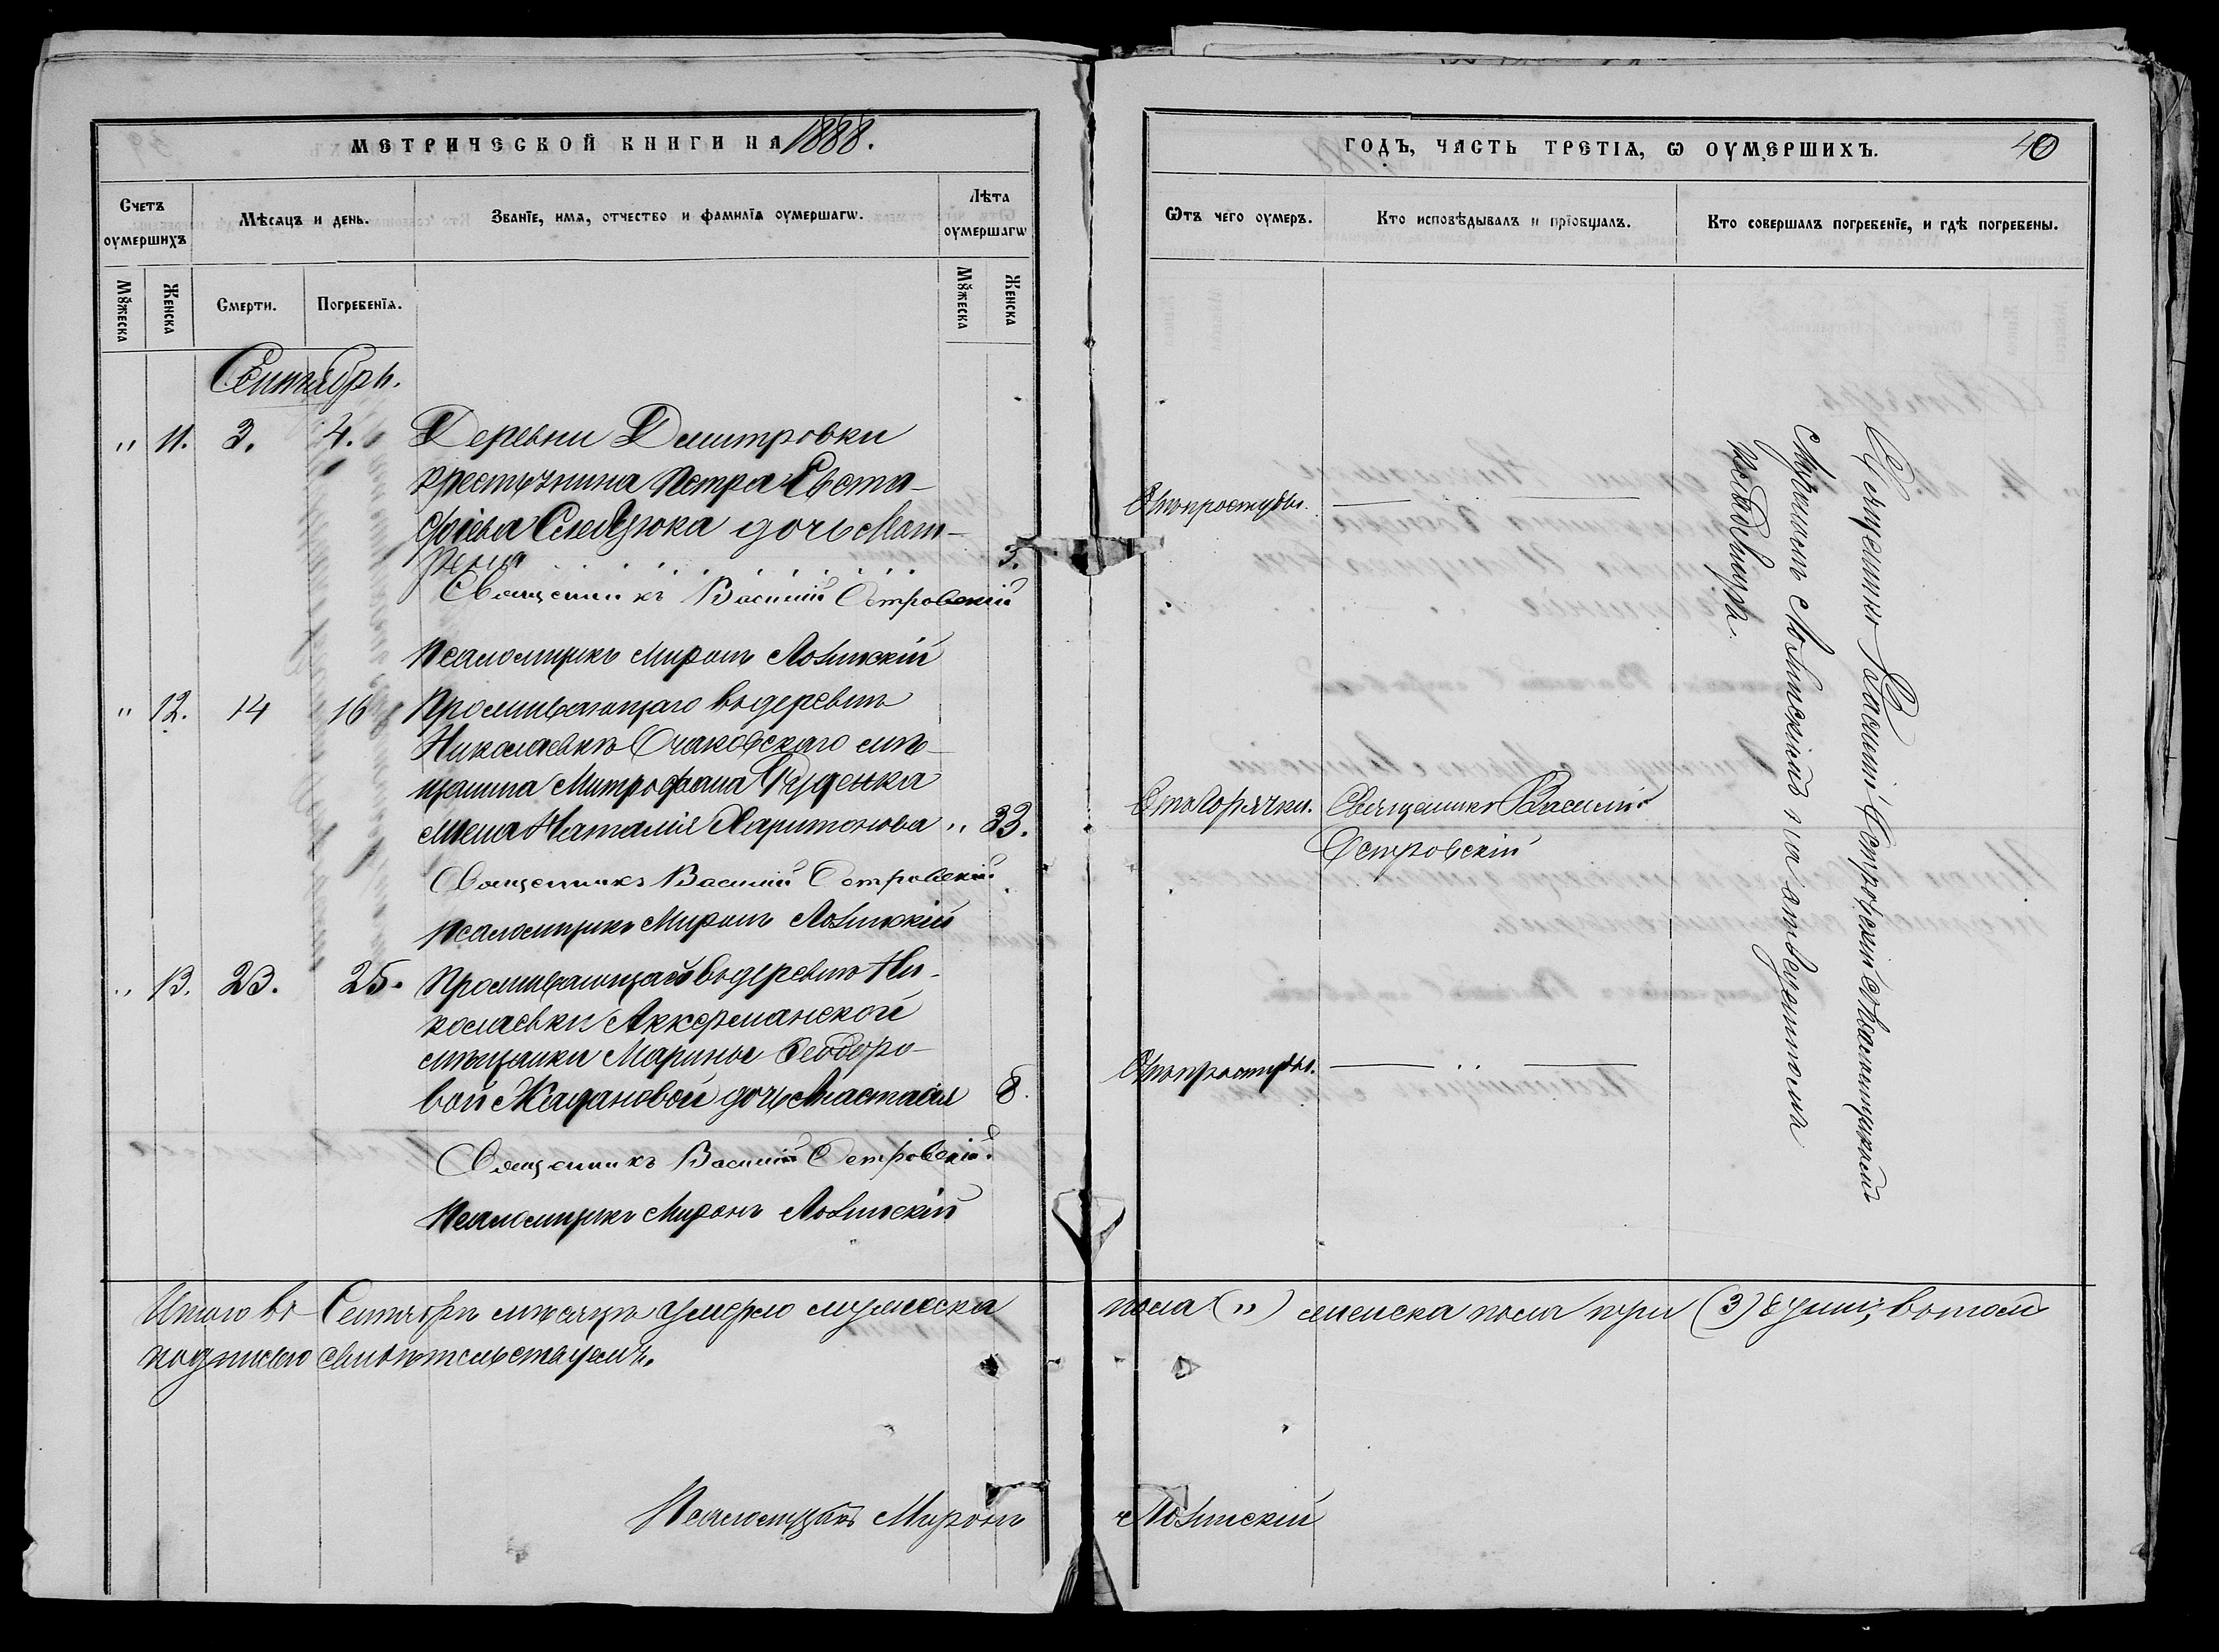 МЕТРИЧЕСКОЙ КНИГИ НА 1888.
Счетъ оумершихъ
Мѣсяцъ и день.
Званїе, имя, отчество и фамилїя оумершагѡ.
Лѣта оумершагѡ
Мꙋжеска
Женска
Смерти.
Погребенїя.
Мꙋжеска
Женска
Сентябрь.
" 11. 3. 4. Деревни Димитровки
крестьянина Петра Евста-
фіева дочь Мат-
рена . . . . . . . . . 3.
Священникъ Василій Островскій
Псаломщикъ Миронъ Лозинскій
" 12. 14 16 Проживающаго въ деревнѣ
Николаевкѣ Очаковскаго мѣ-
щанина Митрофана Руденка
жена Наталія Харитонова " 33.
Священникъ Василій Островскій
Псаломщикъ Миронъ Лозинскій
" 13. 23. 25. Проживающей въ деревнѣ Ни-
колаевки Аккерманской
мѣщанки Марины Ѳеодоро-
вой Жадановой дочь Анастасія 8.
Священникъ Василій Островскій.
Псаломщикъ Миронъ Лозинскій
Итого въ Сентябрѣ мѣсяцѣ умерло мужеска
подписью свидѣтельствуемъ.
Псаломщикъ Миронъ
ГОДЪ, ЧАСТЬ ТРЕТІЯ, Ѡ ОУМЕРШИХЪ.
40
Ѿтъ чего оумеръ.
Кто исповѣдывалъ и прїобщалъ.
Кто совершалъ погребенїе, и гдѣ погребены.
Отъ простуды. — " —
Отъ горячки. Священникъ Василій
Островскій
Отъ простуды. — " —
Священникъ Василій Островскій съ псаломщикомъ
Мирономъ Лозинскимъ на отведенномъ
кладбищѣ.
пола (") женска пола три (3) души, въ томъ
Лозинскій